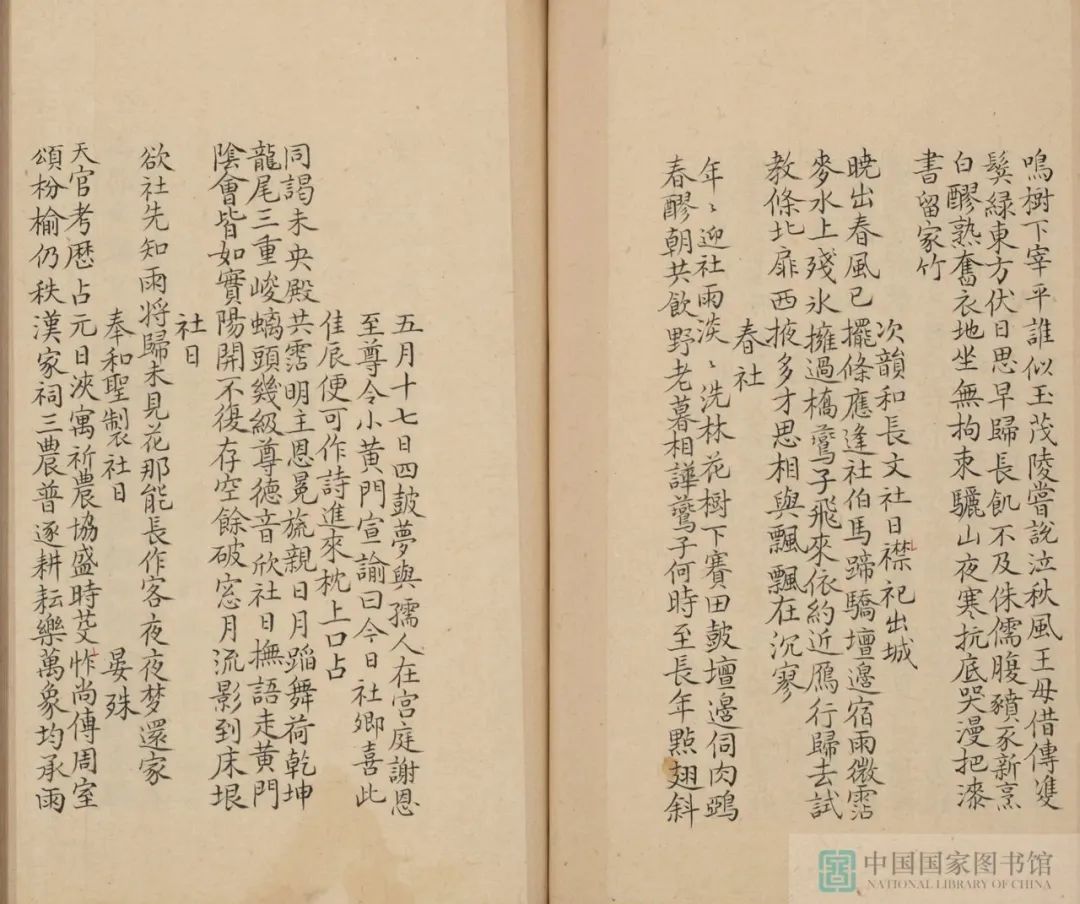 鳴樹下宰平誰似玉茂陵嘗說泣秋風王母借傳雙
鬂綠東方伏日思早歸長飢不及侏儒腹豶豕新烹
白醪熟奮衣地坐無拘束驪山夜寒抗底哭漫把漆
書留家竹
次韻和長文社日禖祀出城
曉出春風已擺條應逢社伯馬蹄驕壇邊宿雨微霑
麥水上殘氷擁過橋鷰子飛來依約近鴈行歸去試
教條北扉西掖多才思相與飄飄在沉寥
春社
年〻迎社雨淡〻洗林花樹下賽田鼓壇邊伺肉鴉
春醪朝共飲野老暮相譁鷰子何時至長年點翅斜
五月十七日四鼓夢與孺人在宫庭謝恩
至尊令小黄門宣諭曰今日社卿喜此
佳辰便可作詩進來枕上口占
同謁未央殿共霑明主恩冕旒親日月蹈舞荷乾坤
龍尾三重峻螭頭幾級尊德音欣社日撫語走黄門
陰會皆如實陽開不復存空餘破窓月流影到床垠
社日
欲社先知雨將歸未見花那能長作客夜夜梦還家
奉和聖製社日
晏殊
天官考歷占元日浹寓祈農協盛時芟怍尚傳周室
頌枌榆仍秩漢家祠三農普逐耕耘樂萬象均承雨
中国国家图书馆
NATIONAL LIBRARY OF CHINA